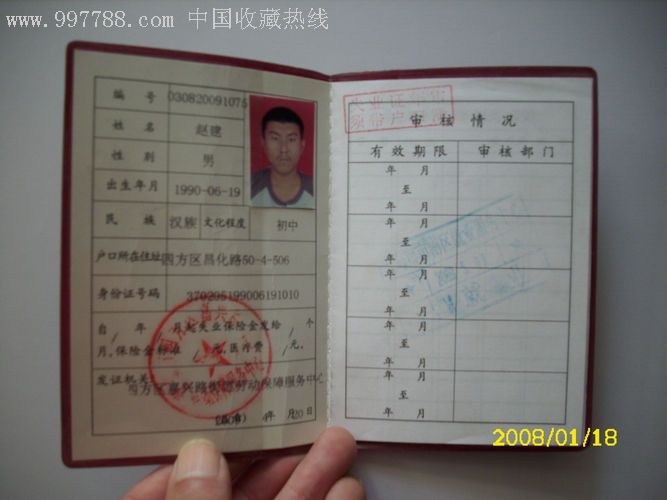 www.997788.com 中国收藏热线
编 号 030820091075
姓 名 赵建
性 别 男
出生年月 1990-06-19
民 族 汉族 文化程度 初中
户口所在住址 四方区昌化路50-4-506
身份证号码 370205199006191010
自 年 月起失业保险金发给 个
月,保险金标准 元,医疗费 元.
发证机关 四方区嘉兴路街道劳动保障服务中心
4月20日
审 核 情 况
有效期限 审核部门
年 月
至
年 月
年 月
至
年 月
年 月
至
年 月
年 月
至
年 月
年 月
至
年 月
2008/01/18